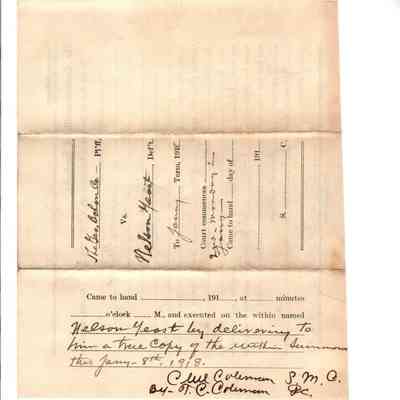 The Geo. Delon Co — Pl'ff.
Vs.
Nelson Yeast Def't.
To Jany Term, 1918
Court commences
3rd Monday in
Jany
Came to hand day of
191
S. C.
Came to hand , 191 , at minutes
o'clock M., and executed on the within named
Nelson Yeast by delivering to
him a true Copy of the within Summons
this Jany - 8th, 1918.
Coleman S. M. C.
By- T. C. Coleman DC.